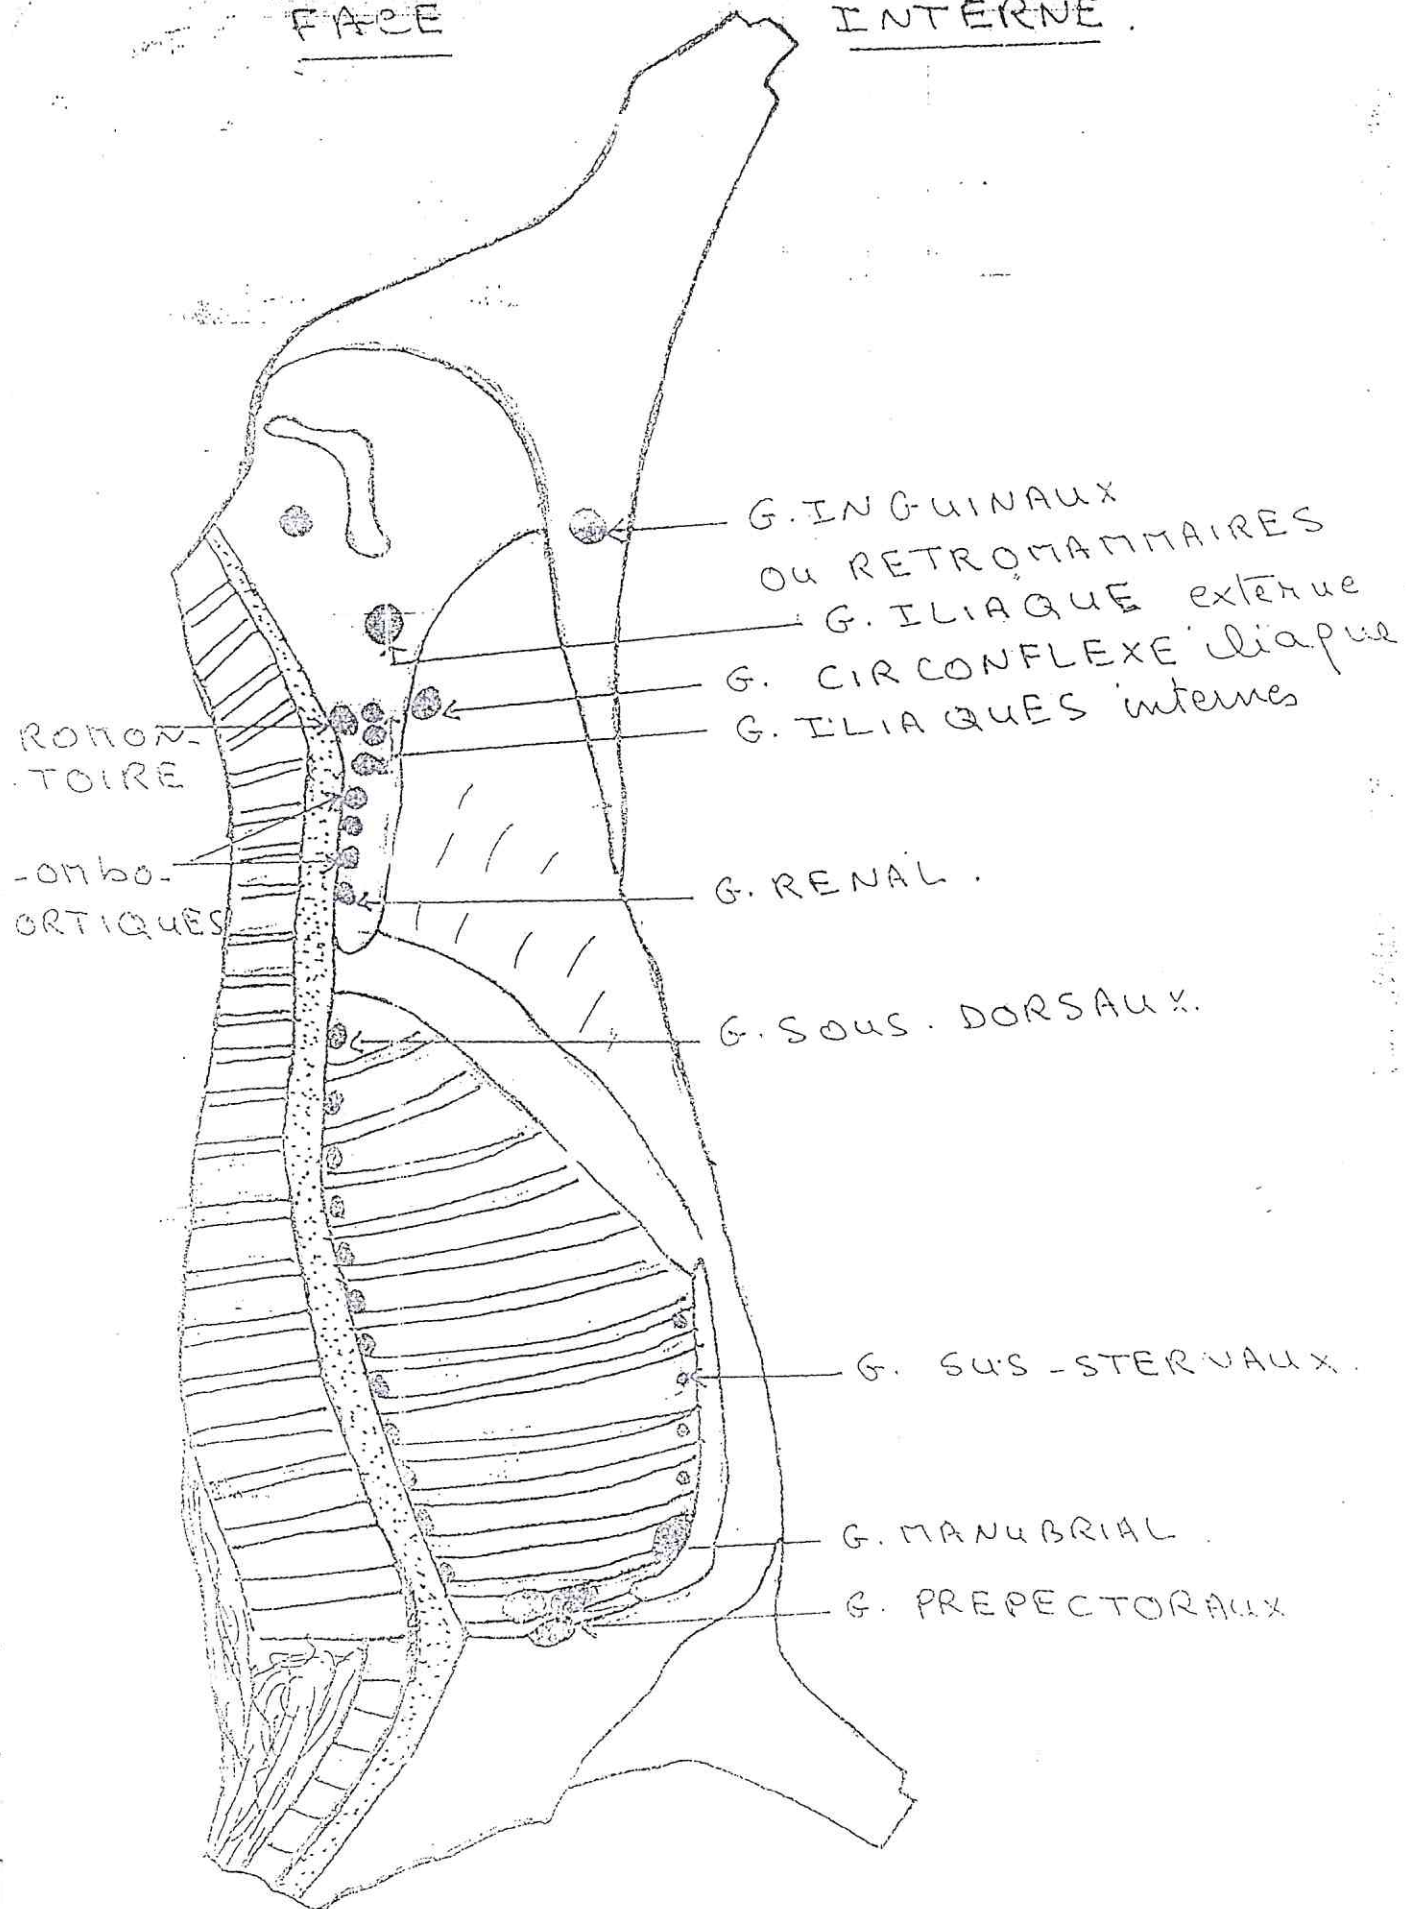 FACE INTERNE.
G. INGUINAUX
OU RETROMAMMAIRES
G. ILIAQUE externe
G. CIRCONFLEXE iliaque
G. ILIAQUES internes
ROMON-
TOIRE
-OMBO-
ORTIQUES
G. RENAL.
G. SOUS. DORSAUX.
G. SUS-STERNAUX.
G. MANUBRIAL.
G. PREPECTORAUX